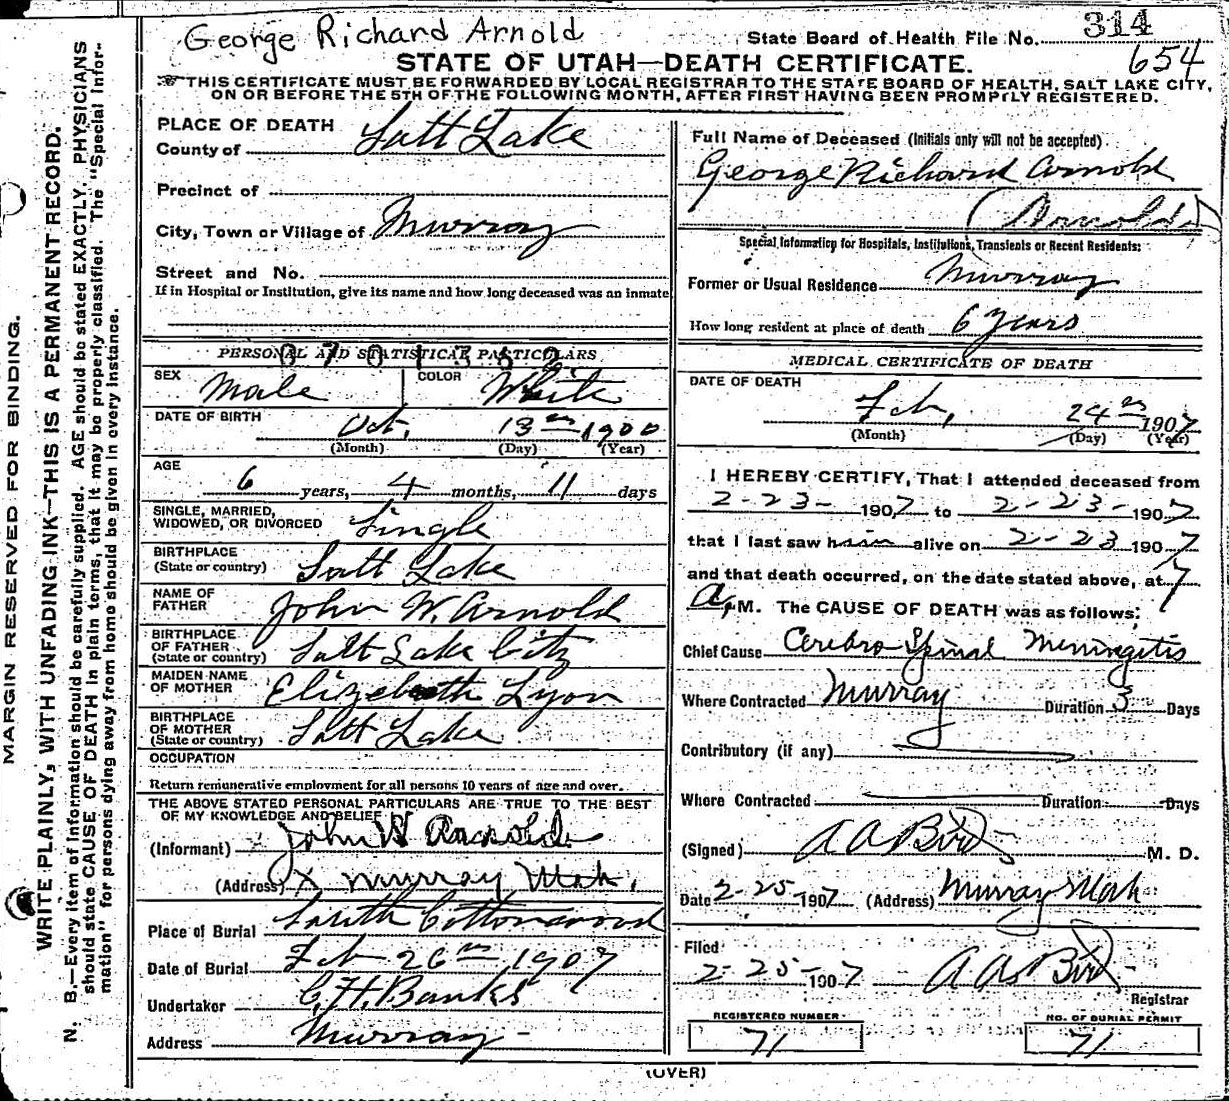 George Richard Arnold
State Board of Health File No. 314
654
STATE OF UTAH—DEATH CERTIFICATE.
THIS CERTIFICATE MUST BE FORWARDED BY LOCAL REGISTRAR TO THE STATE BOARD OF HEALTH, SALT LAKE CITY,
ON OR BEFORE THE 5TH OF THE FOLLOWING MONTH, AFTER FIRST HAVING BEEN PROMPTLY REGISTERED.
MARGIN RESERVED FOR BINDING.
WRITE PLAINLY, WITH UNFADING INK—THIS IS A PERMANENT RECORD.
N. B.—Every item of information should be carefully supplied. AGE should be stated EXACTLY. PHYSICIANS
should state CAUSE OF DEATH in plain terms, that it may be properly classified. The "Special Infor-
mation" for persons dying away from home should be given in every instance.
PLACE OF DEATH
County of Salt Lake
Precinct of
City, Town or Village of Murray
Street and No.
If in Hospital or Institution, give its name and how long deceased was an inmate
PERSONAL AND STATISTICAL PARTICULARS
SEX Male COLOR White
DATE OF BIRTH Oct. 13th 1900
(Month) (Day) (Year)
AGE
6 years, 4 months, 11 days
SINGLE, MARRIED,
WIDOWED, OR DIVORCED Single
BIRTHPLACE
(State or country) Salt Lake
NAME OF
FATHER John W. Arnold
BIRTHPLACE
OF FATHER
(State or country) Salt Lake City
MAIDEN NAME
OF MOTHER Elizebeth Lyon
BIRTHPLACE
OF MOTHER
(State or country) Salt Lake
OCCUPATION
Return remunerative employment for all persons 10 years of age and over.
THE ABOVE STATED PERSONAL PARTICULARS ARE TRUE TO THE BEST
OF MY KNOWLEDGE AND BELIEF
(Informant) John W Arnold
(Address) X Murray Utah.
Place of Burial South Cottonwood
Date of Burial Feb 26th 1907
Undertaker C. H. Banks
Address Murray
Full Name of Deceased (Initials only will not be accepted).
George Richard Arnold
(Arnold)
Special Information for Hospitals, Institutions, Transients or Recent Residents:
Former or Usual Residence Murray
How long resident at place of death 6 years
MEDICAL CERTIFICATE OF DEATH
DATE OF DEATH
Feb, 24th 1907
(Month) (Day) (Year)
I HEREBY CERTIFY, That I attended deceased from
2-23-1907 to 2-23-1907
that I last saw him alive on 2-23 1907
and that death occurred, on the date stated above, at 7
A. M. The CAUSE OF DEATH was as follows:
Chief Cause Cerebro Spinal Meningitis
Where Contracted Murray Duration 3 Days
Contributory (if any)
Where Contracted Duration Days
(Signed) A A Bird M. D.
Date 2-25-1907 (Address) Murray Utah
Filed
2-25-1907 A A Bird
Registrar
REGISTERED NUMBER NO. OF BURIAL PERMIT
71 71
(OVER)